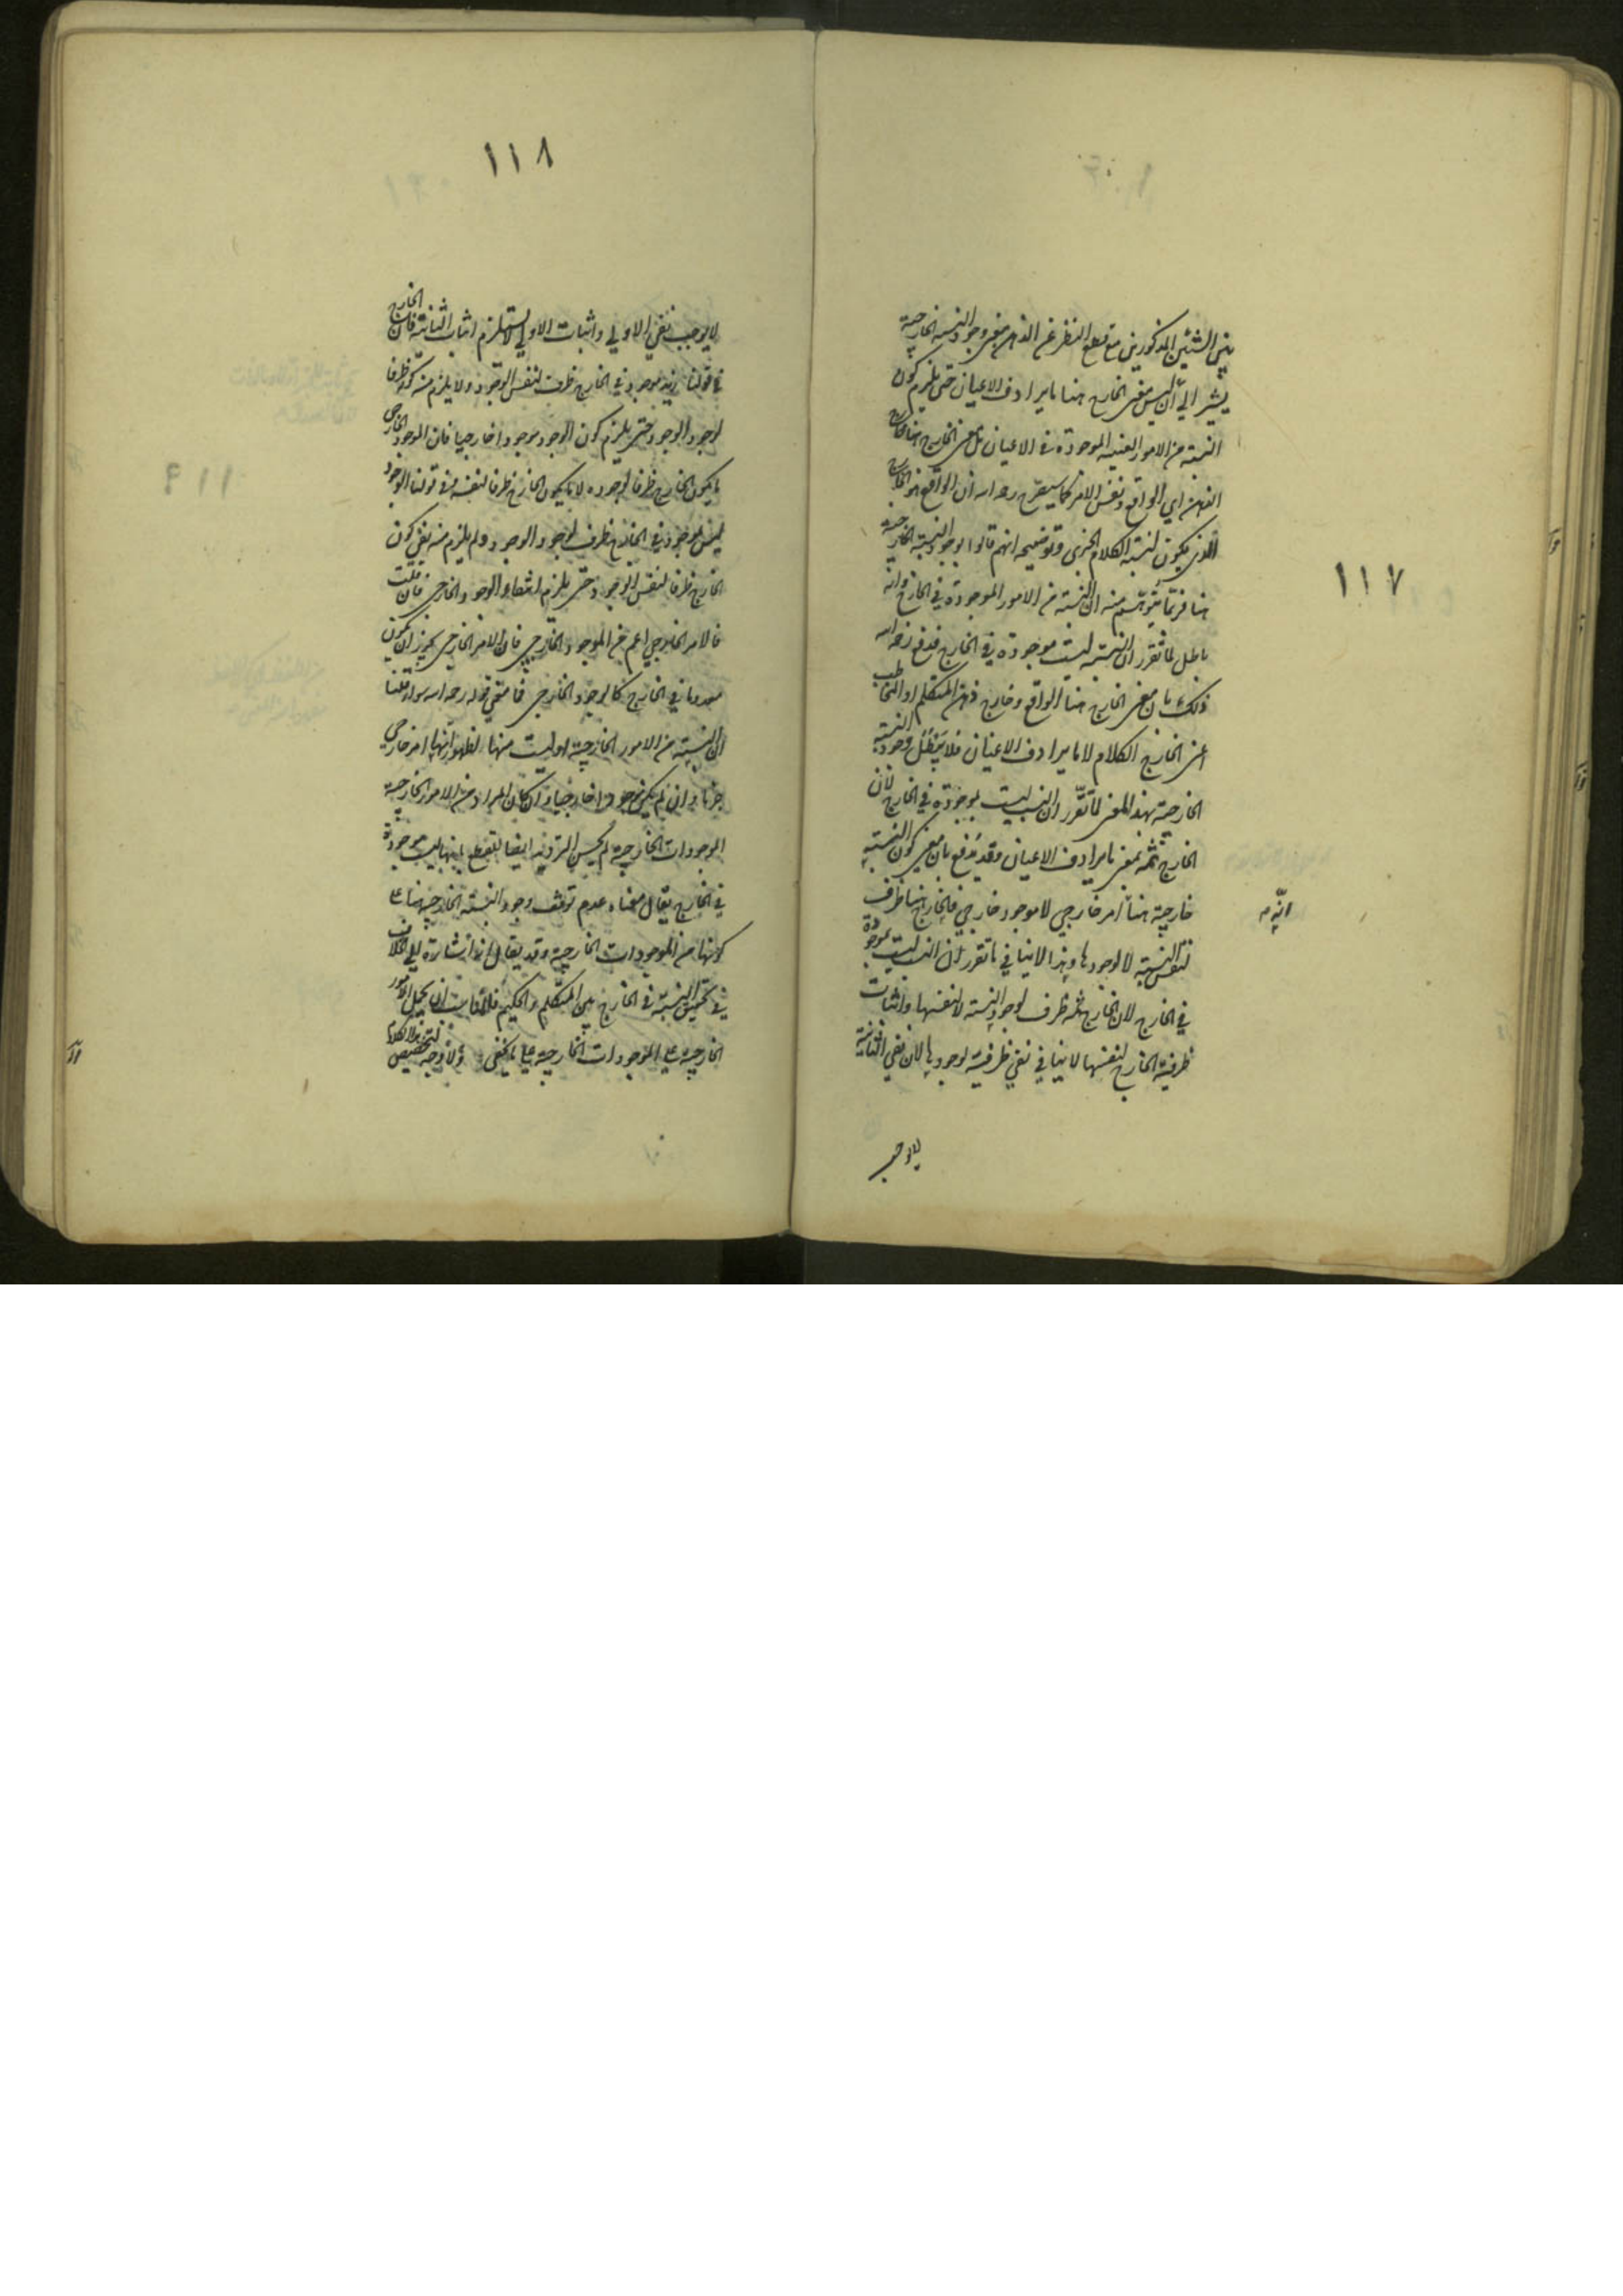 ١١٧
بين الشيئين المذكورين مع قطع النظر عن الذهن معنى وجود النسبة الخارجية
يشير الى ان ليس معنى الخارج هنا ما يرادف الاعيان حتى يلزم كون
النسبة من الامور العينية الموجودة في الاعيان بل معنى الخارج هنا خارج
الذهن اي الواقع ونفس الامر كما سيصرح رحمه الله ان الواقع هو الخارج
الذي يكون لنسبة الكلام الخبري وتوضيحه انهم قالوا بوجود النسبة الخارجية
هنا فربما يتوهم منه ان النسبة من الامور الموجودة في الخارج وانه
باطل لما تقرر ان النسبة ليست موجودة في الخارج فدفع رحمه الله
ذلك بان معنى الخارج هنا الواقع وخارج ذهن المتكلم او المخاطب
اعني الخارج الكلام لا ما يرادف الاعيان فلا يبطل وجود النسبة
الخارجية بهذا المعنى لما تقرر ان النسب ليست بموجودة في الخارج لان
الخارج ثمه بمعنى ما يرادف الاعيان وقد يدفع بان معنى كون النسبة
خارجية هنا انه امر خارجي لا موجود خارجي فالخارج هنا ظرف
لنفس النسبة لا لوجودها وهذا لا ينافي ما تقرر ان النسب ليست بموجودة
في الخارج لان الخارج ثمه ظرف لوجود النسبة لا لنفسها واثبات
ظرفية الخارج لنفسها لا ينافي نفي ظرفية لوجودها لان نفي الثانية
لا يوجب
١١٨
لا يوجب نفي الاولى واثبات الاولى لا يستلزم اثبات الثانية فان الخارج
في قولنا زيد موجود في الخارج ظرف لنفس الوجود ولا يلزم من كونه ظرفا
لوجود الوجود حتى يلزم كون الوجود موجودا خارجيا فان الموجود الخارجي
ما يكون الخارج ظرفا لوجوده لا ما يكون الخارج ظرفا لنفسه وفي قولنا الوجود
ليس بموجود في الخارج ظرف لوجود الوجود ولم يلزم منه نفي كون
الخارج ظرفا لنفس الوجود حتى يلزم انتفاء الوجود الخارجي فان قلت
فالامر الخارجي اعم من الموجود الخارجي فان الامر الخارجي يجوز ان يكون
معدوما في الخارج كالوجود الخارجي فما معنى قوله رحمه الله سواء قلنا
ان النسبة من الامور الخارجية او ليست منها لظهور انها امر خارجي
جزما وان لم يكن موجودا خارجيا وان كان المراد من الامور الخارجية
الموجودات الخارجية لم يحسن الترديد ايضا للقطع بانها ليست موجودة
في الخارج يقال معناه عدم توقف وجود النسبة الخارجية هنا على
كونها من الموجودات الخارجية وقد يقال هذا اشارة الى الخلاف
في تحقق النسبة في الخارج بين المتكلم والحكيم فلا فائدة ان يحمل الامور
الخارجية على الموجودات الخارجية على ما يخفى ولا وجه لتخصيص